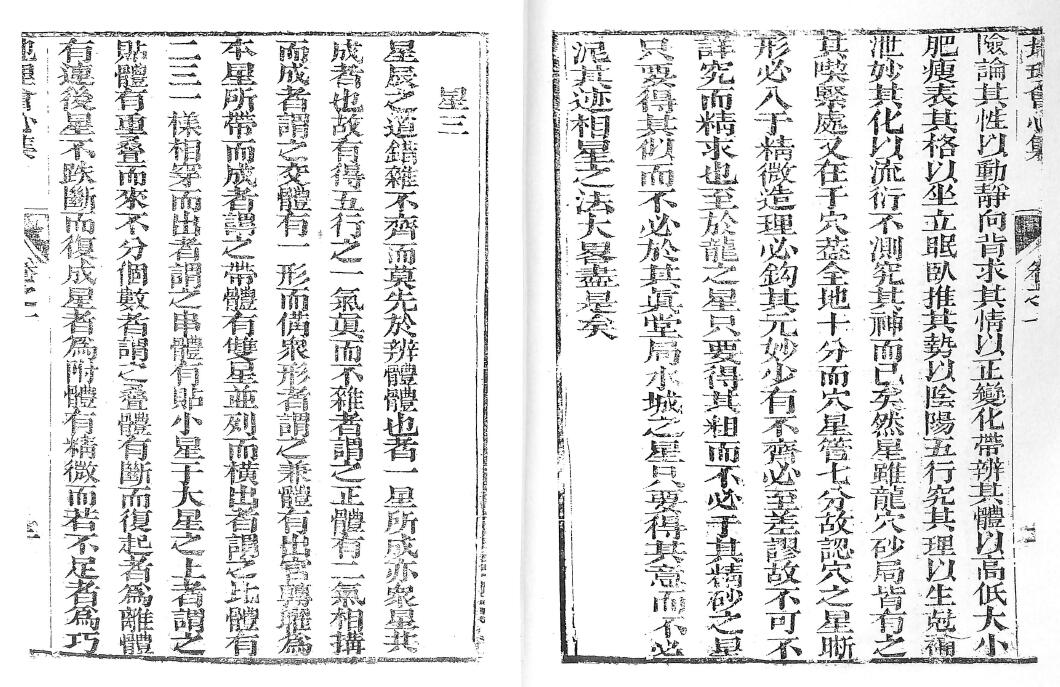 地理會心集
卷之一
險論其性以動靜向背求其情以正變化帶辨其體以高低大小
肥瘦表其格以坐立眠臥推其勢以陰陽五行究其理以生尅論
泄妙其化以流衍不測究其神而已矣然星雖龍穴砂局皆有之
其喫緊處又在于穴葢全地十分而穴星管七分故認穴之星晰
形必入于精微造理必鈎其元妙少有不齊必至差謬故不可不
詳究而精求也至於龍之星只要得其粗而不必于其精砂之星
只要得其似而不必於其眞堂局水城之星只要得其意而不必
泥其迹相星之法大畧盡是矣
星三
星辰之道錯雜不齊而莫先於辨體體也者一星所成亦衆星共
成者也故有得五行之一氣眞而不雜者謂之正體有二氣相搆
而成者謂之交體有一形而備衆形者謂之兼體有出宮舅權爲
本星所帶而成者謂之帶體有雙星並列而橫出者謂之比體有
二三一樣相穿而出者謂之串體有貼小星于大星之上者謂之
貼體有重叠而來不分個數者謂之叠體有斷而復起者為離體
有連後星不跌斷而復成星者為附體有精微而若不足者為巧
地理會心集
卷之一